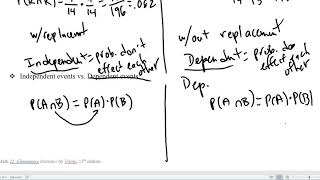 P(R∩R) = /14 · 1/14 = /196 = .062
14 13
w/replacement
Independent = prob. don't effect each other
❖ Independent events vs. Dependent events
P(A∩B) = P(A)·P(B)
w/out replacement
Dependent = prob. do effect each other
Dep.
P(A∩B) = P(A)·P(B)